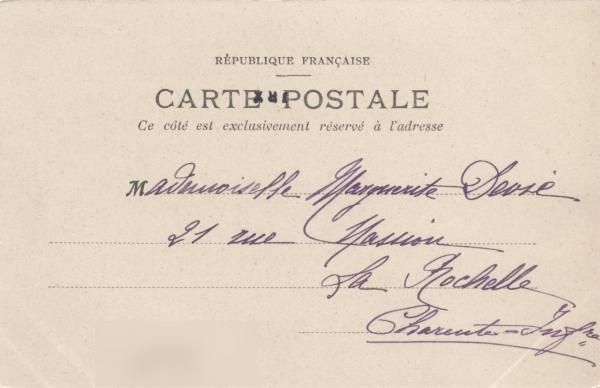 RÉPUBLIQUE FRANÇAISE
CARTE POSTALE
Ce côté est exclusivement réservé à l'adresse
Mademoiselle Marguerite
21 rue
La Rochelle
Charente-Infre